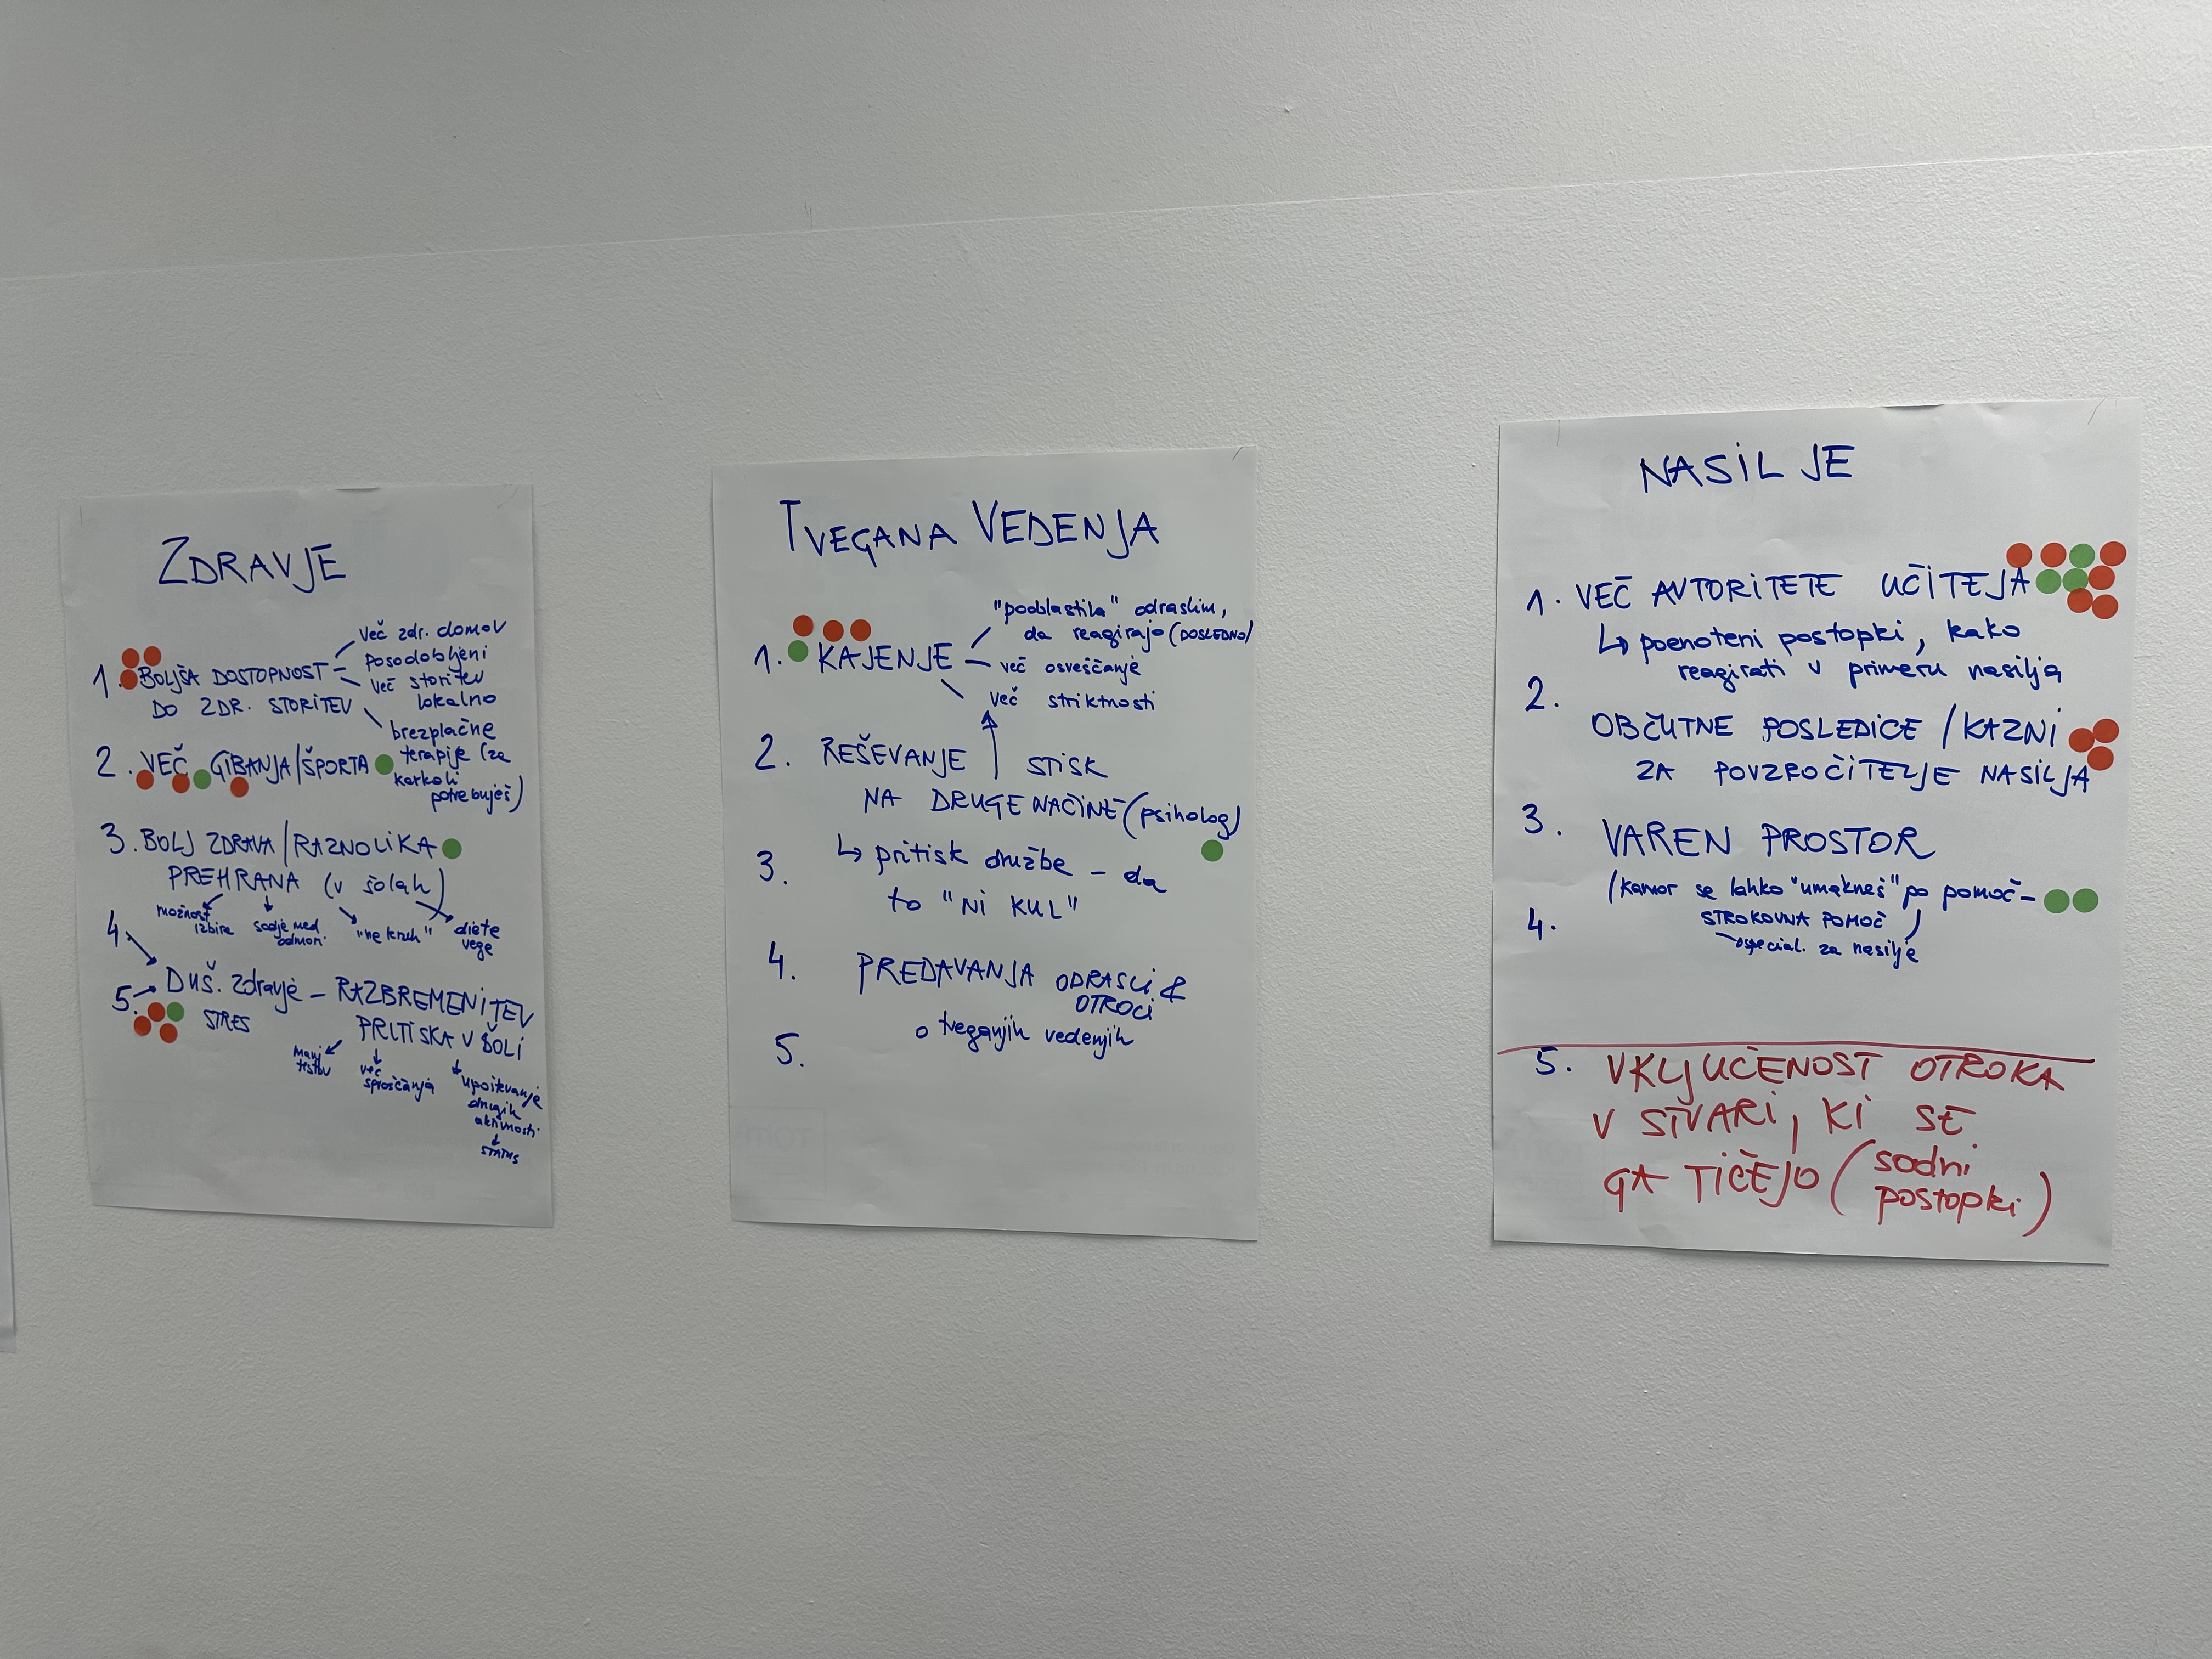 ZDRAVJE
1. BOLJŠA DOSTOPNOST
DO ZDR. STORITEV
več zdr. domov
posodobljeni
več storitev
lokalno
brezplačne
terapije (za
karkoli
potrebuješ)
2. VEČ GIBANJA/ŠPORTA
3. BOLJ ZDRAVA/RAZNOLIKA
PREHRANA (v šolah)
možnost
izbire
sadje med
odmori
"ne kruh"
diete
vege
4.
5. DUŠ. zdravje - RAZBREMENITEV
STRES
PRITISKA V ŠOLI
manj
testov
več
sproščanja
upoštevanje
drugih
aktivnosti
STATUS
TVEGANA VEDENJA
1. KAJENJE
"pooblastila" odraslim,
da reagirajo (DOSLEDNO)
več osveščanje
več striktnosti
2. REŠEVANJE STISK
NA DRUGE NAČINE (psiholog)
3. pritisk družbe - da
to "NI KUL"
4. PREDAVANJA ODRASLI &
OTROCI
o tveganjih vedenjih
5.
NASILJE
1. VEČ AVTORITETE UČITEJA
poenoteni postopki, kako
reagirati v primeru nasilja
2.
OBČUTNE POSLEDICE/KAZNI
ZA POVZROČITELJE NASILJA
3. VAREN PROSTOR
(kamor se lahko "umakneš" po pomoč -
4. STROKOVNA POMOČ)
special. za nasilje
5. VKLJUČENOST OTROKA
V STVARI, KI SE
GA TIČEJO (sodni
postopki)